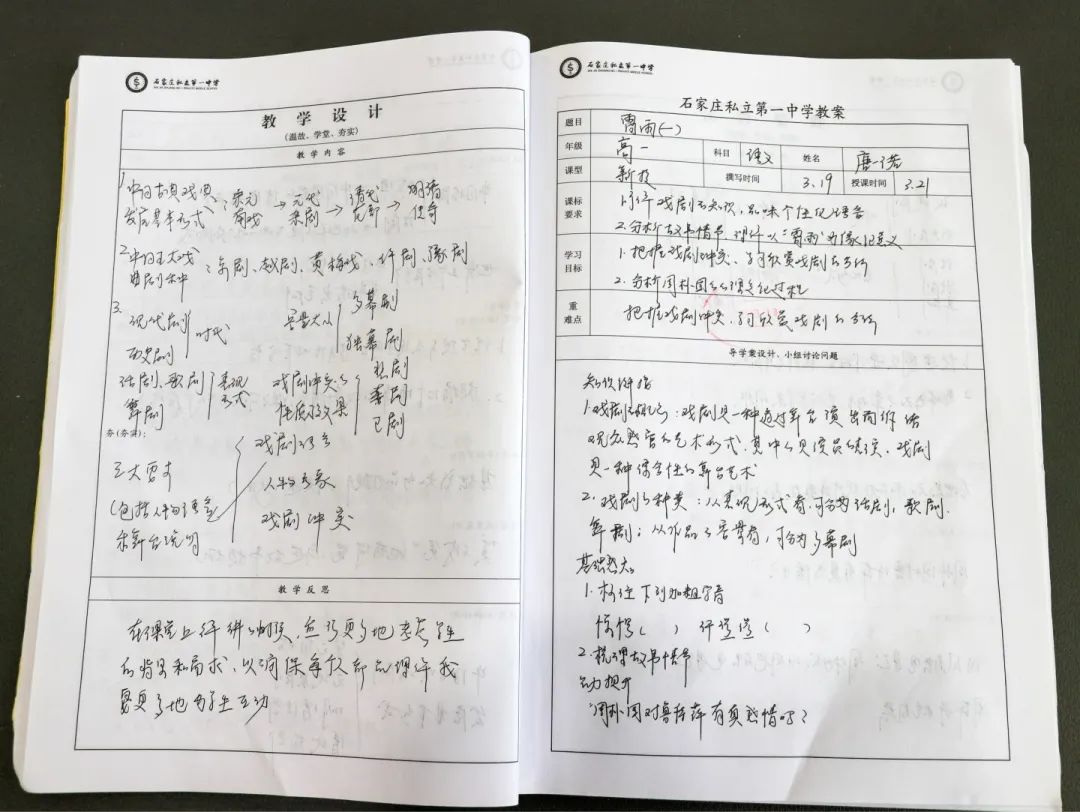 石家庄私立第一中学
教学设计
(温故、学堂、夯实)
教学内容
1.中国古典戏曲
发展基本形式
宋元南戏→元代杂剧→清代花部→明清传奇
2.中国五大戏曲剧种:京剧、越剧、黄梅戏、评剧、豫剧
3.
现代剧
历史剧
时代
话剧、歌剧
舞剧
表现形式
容量大小
多幕剧
独幕剧
戏剧冲突的
性质及效果
悲剧
喜剧
正剧
夯(夯实):
三大要素
(包括人物语言
和舞台说明
戏剧语言
人物形象
戏剧冲突
教学反思
在课堂上评讲的时候,应该更多地考虑学生
的背景和需求,以确保每个
更多地与学生互动
石家庄私立第一中学
石家庄私立第一中学教案
题目 雷雨(一)
年级 高一 科目 语文 姓名 唐一诺
课型 新授 撰写时间 3.19 授课时间 3.21
课标要求
1.了解戏剧知识,品味个性化语言
2.分析故事情节,理解以“雷雨”为象征意义
学习目标
1.把握戏剧冲突、学习欣赏戏剧的方法
2.分析周朴园的心理变化过程
重难点
把握戏剧冲突,学习欣赏戏剧的方法
导学案设计、小组讨论问题
知识链接
1.戏剧的概念:戏剧是一种通过舞台演出而作活
观众欣赏的艺术形式,其中以演员的表演,戏剧
是一种综合性的舞台艺术
2.戏剧的种类:从表现形式看,可分为话剧,歌剧.
舞剧;从作品的容量看,可分为多幕剧
基础
1.标注下列加粗字音
惊愕( ) 汗涔涔( )
2.梳理故事情节
互动提升
“周朴园对鲁侍萍有真感情吗?